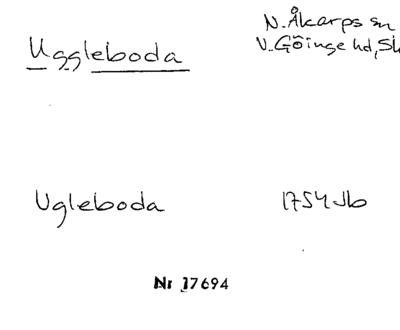 Uggleboda
N. Åkarps sn
V. Göinge hd, Sk
Ugleboda
1754 Jb
Nr 17694